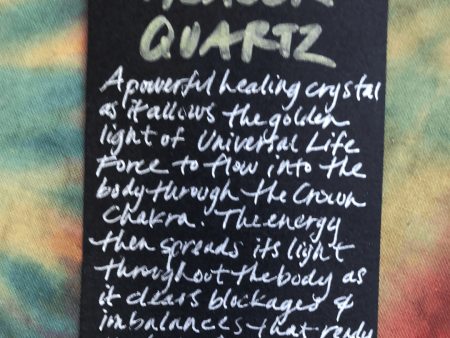 HEALER
QUARTZ
A powerful healing crystal
as it allows the golden
light of Universal Life
Force to flow into the
body through the Crown
Chakra. The energy
then spreads its light
throughout the body as
it clears blockages &
imbalances that ready